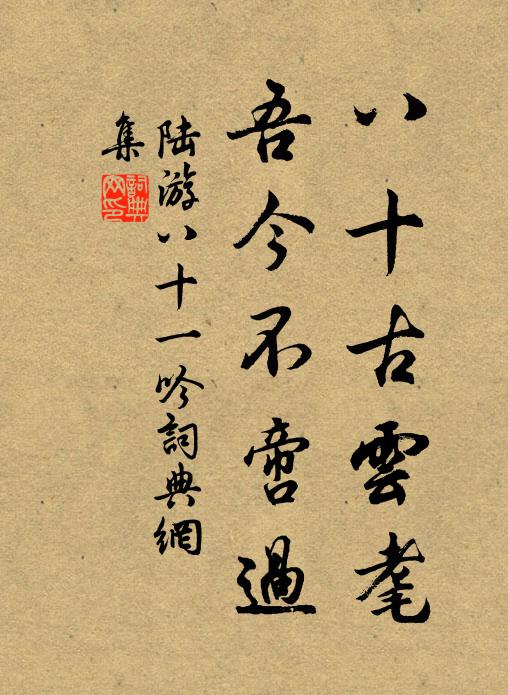 八十古雲耄
吾今不啻過
陸游八十一吟詞典網
集
詞典網印